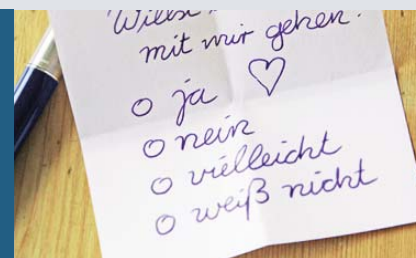 mit mir gehen?
o ja ♡
o nein
o vielleicht
o weiß nicht